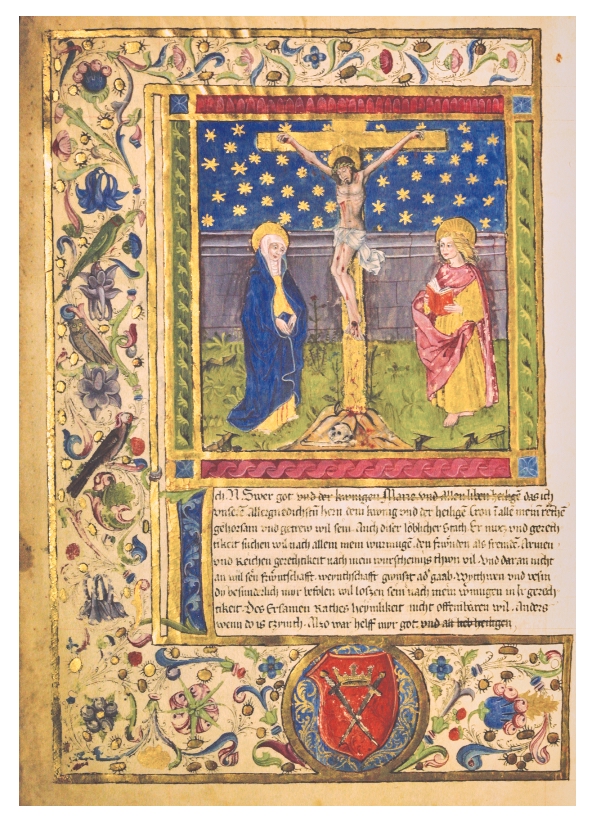 Ich N Swer got vnd der kunigen Marie vnd allen liben heilgē das ich
vnserm allergnedichstn hern dem konig vnd der heiligē Cron ī alle mein rechtē
gehorsam vnd getrew wil sein Auch diser löblicher Stath Er nucz vnd gerech
tikeit suchen wil nach allem mein den frunden als fremdē Armen
vnd Reichen gerechtikeit nach mein thun wil Vnd dar an nicht
an wil sen fruntschafft gunst ad gaab vnd
du besunderlich myr befolen wil loszen sein nach mein in ir gerech
tikeit Des Ersamen Rathes heymlikeit nicht offinbaren wil Anders
wenn do is czymth Alzo war helff myr got vnd all lieb heiligen